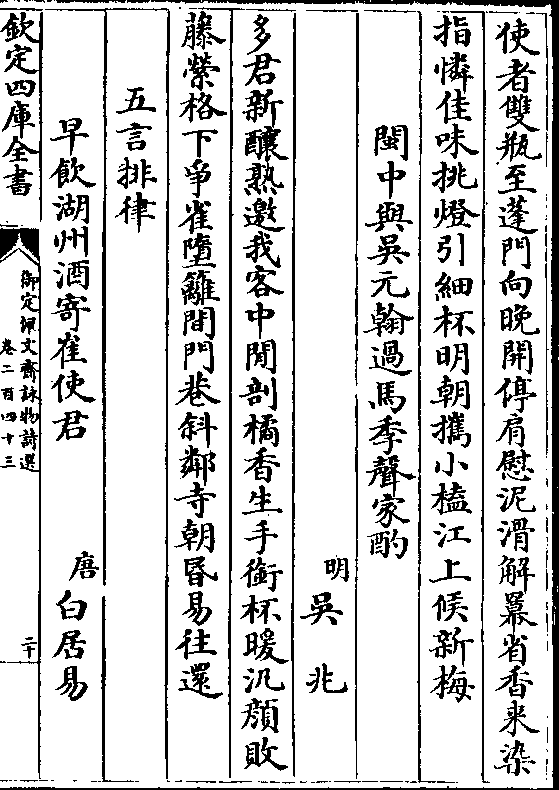 使者雙瓶至蓬門向晚開停肩慰泥滑解羃省香来染
指憐佳味挑燈引細杯明朝攜小榼江上候新梅
閩中與吳元翰過馬季聲家酌
明吳兆
多君新釀熟邀我客中閒剖橘香生手銜杯暖氿顏敗
藤縈格下爭雀墮籬間門巷斜鄰寺朝昏易往還
五言排律
早飲湖州酒寄崔使君
唐白居易
欽定四庫全書
御定佩文齋詠物詩選
卷二百四十三
二十